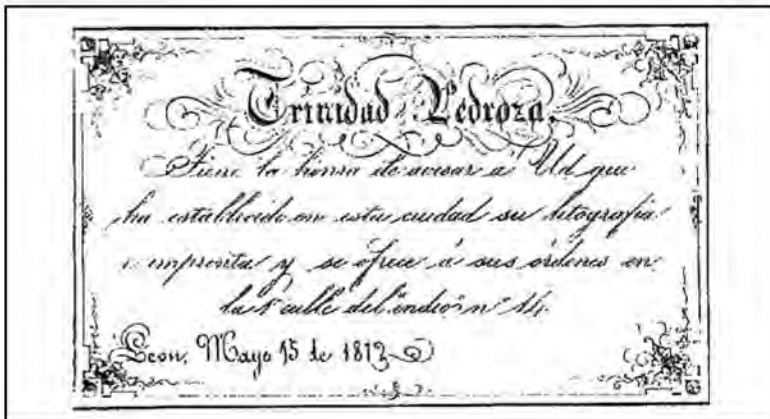 Trinidad Pedroza.
Tiene la honra de avisar a Ud que
ha establecido en esta ciudad su litografia
imprenta y se ofrece á sus ordenes en
la calle del n° 14.
Leon, Mayo 15 de